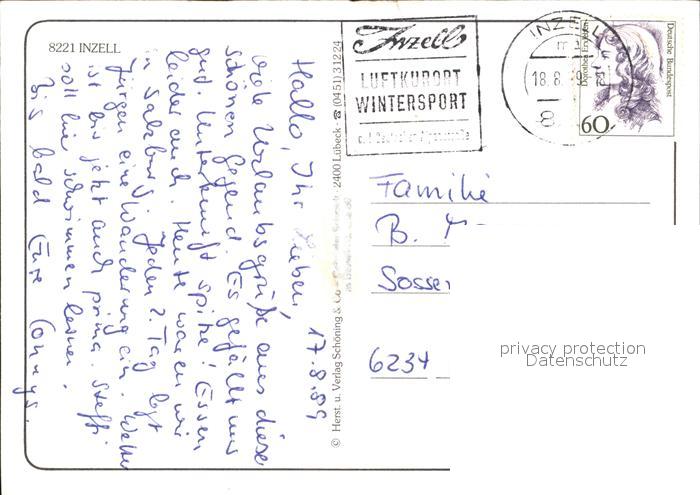 8221 INZELL
Hallo, Ihr Lieben, 17.8.89
viele Urlaubsgrüße aus dieser
schönen Gegend. Es gefällt uns
gut. Unterkunft spitze! Essen
leider auch. Heute waren wir
in Salzburg. Jeden 2. Tag legt
Jürgen eine Wanderung ein. Wetter
ist bis jetzt auch prima. Steffi
soll hier schwimmen lernen.
Bis bald Eure Connys.
© Herst. u. Verlag Schöning & Co · 2400 Lübeck · ☎ (0451) 31224
Inzell
LUFTKURORT
WINTERSPORT
INZELL
18.8.
8
Deutsche Bundespost
Dorothea Erxleben
60
Familie
B.
Sossen
6234
privacy protection
Datenschutz